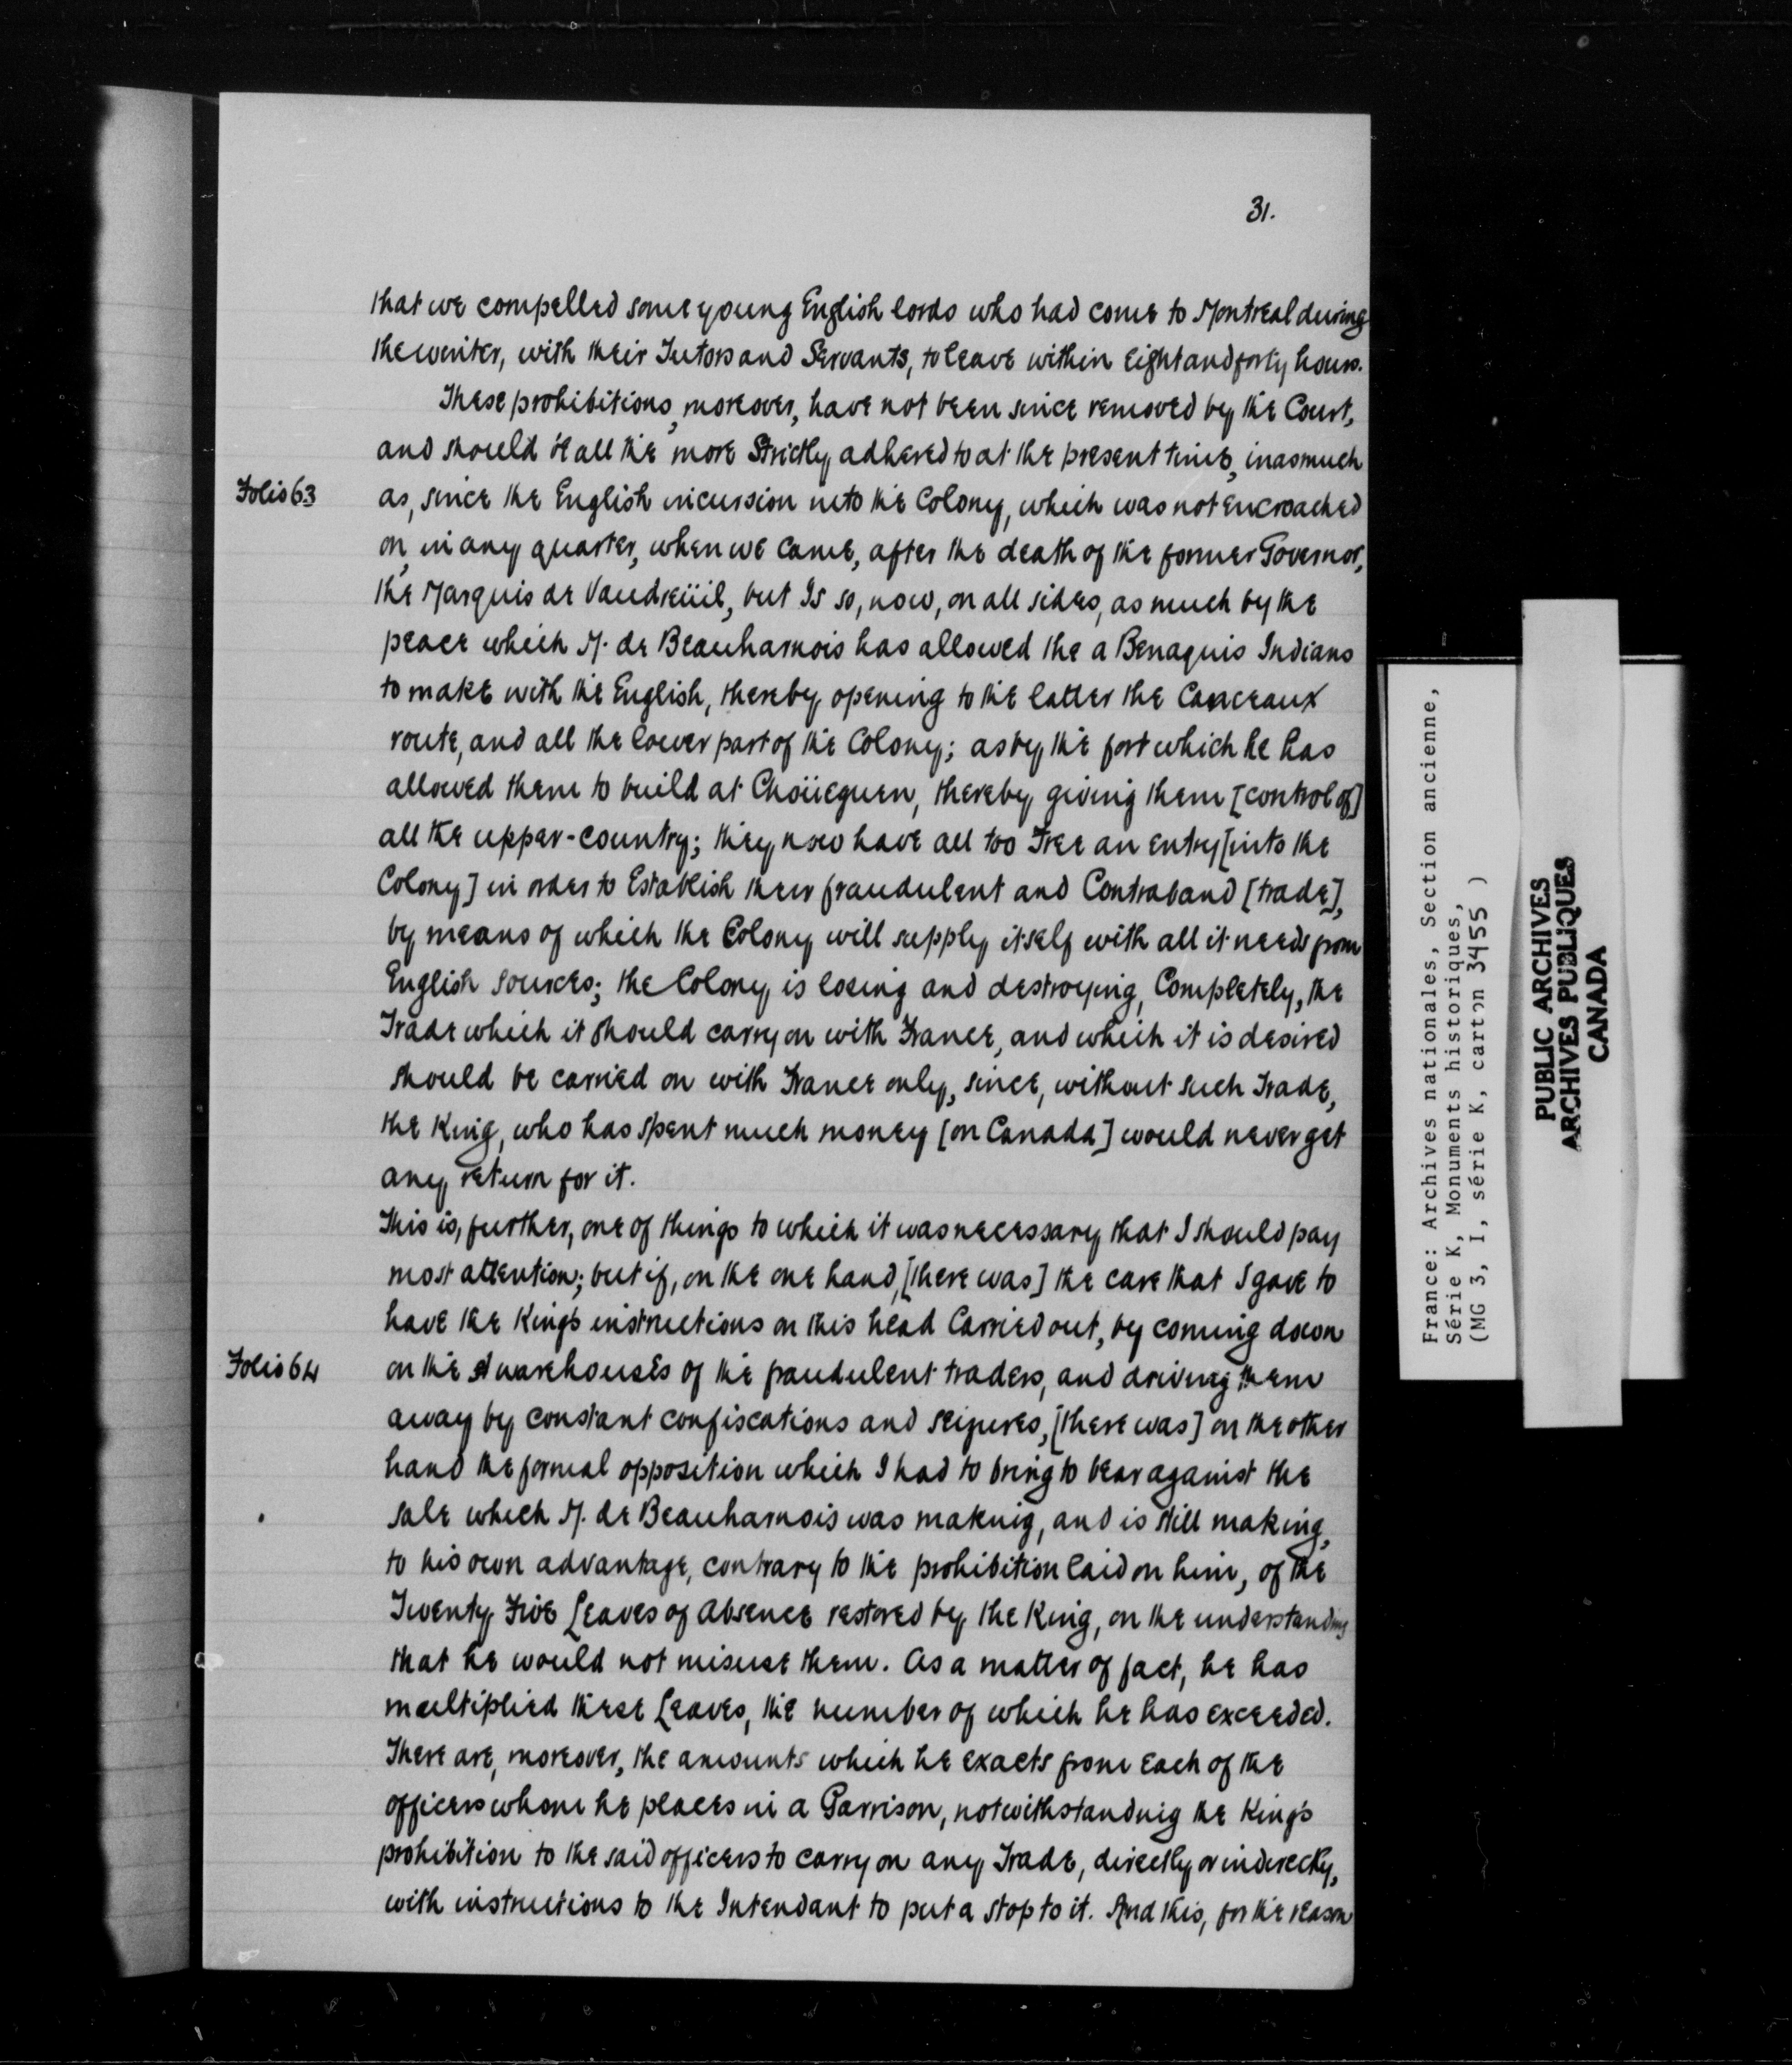 31.
that we compelled some young English lords who had come to Montreal during
the winter, with their Tutors and Servants, to leave within Eight and forty hours.
These prohibitions, moreover, have not been since removed by the Court,
and should be all the more Strictly adhered to at the present time, inasmuch
Folio 63
as, since the English incursion into the Colony, which was not Encroached
on, in any quarter, when we came, after the death of the former Governor,
the Marquis de Vaudreüil, but Is so, now, on all sides, as much by the
peace which M. de Beauharnois has allowed the a Benaquis Indians
to make with the English, thereby opening to the latter the Canceaux
route, and all the lower part of the Colony; as by the fort which he has
allowed them to build at Choüeguen, thereby giving them [control of]
all the upper-country; they now have all too Free an entry [into the
Colony] in order to Establish their fraudulent and Contraband [trade],
by means of which the Colony will supply itself with all it needs from
English sources; the Colony is losing and destroying, Completely, the
Trade which it should carry on with France, and which it is desired
should be carried on with France only, since, without such Trade,
the King, who has spent much money [on Canada] would never get
any return for it.
This is, further, one of things to which it was necessary that I should pay
most attention; but if, on the one hand, [there was] the care that I gave to
have the King's instructions on this head Carried out, by coming down
Folio 64
on the warehouses of the fraudulent traders, and driving them
away by constant confiscations and seizures, [there was] on the other
hand the formal opposition which I had to bring to bear against the
sale which M. de Beauharnois was making, and is still making,
to his own advantage, contrary to the prohibition laid on him, of the
Twenty Five Leaves of Absence restored by the King, on the understanding
that he would not misuse them. As a matter of fact, he has
multiplied these Leaves, the number of which he has exceeded.
There are, moreover, the amounts which he exacts from Each of the
officers whom he places in a Garrison, notwithstanding the King's
prohibition to the said officers to carry on any Trade, directly or indirectly,
with instructions to the Intendant to put a stop to it. And this, for the reason
France: Archives nationales, Section ancienne,
Série K, Monuments historiques,
(MG 3, I, série K, carton 3455 )
PUBLIC ARCHIVES
ARCHIVES PUBLIQUES
CANADA